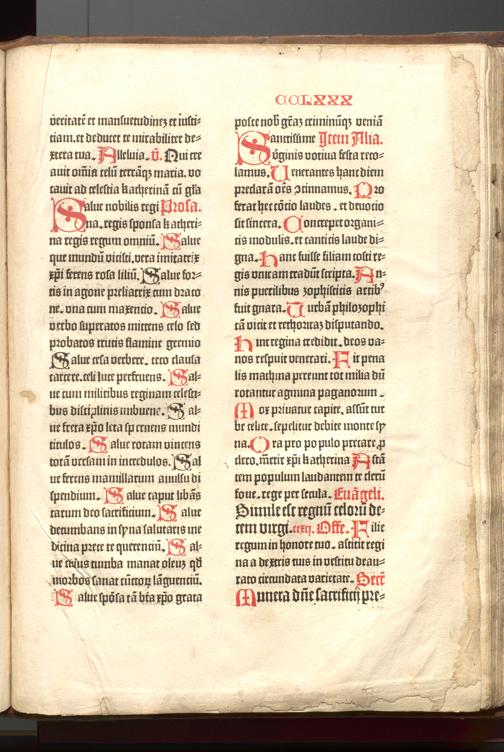 CCLXXX
veritatē et mansuetudinez et iusti-
ciam. et deducet te mirabiliter de-
xtera tua. Alleluia. v̄. Qui cre
auit om̄ia celū terrāqz maria. vo
cauit ad celestia katherinā cū glīa
Salue nobilis regi Prosa.
na. regis sponsa katheri-
na regis regum omniū. Salue
que mundū vicisti. vera imitatrix
xp̄i ferens rosa liliū. Salue for-
tis in agone preliatrix cum draco
ne. vna cum maxencio. Salue
verbo superatos mittens celo sed
probatos crucis flamine gremio
Salue cesa verbere. ceco clausa
carcere. celi luce perfruens. Sal-
ue cum militibus reginam celesti-
bus disciplinis imbuens. Sal-
ue freta xp̄o leta spernens mundi
titulos. Salue rotam vincens
totā versam in incredulos. Sal
ue ferens mamillarum auulsu di
spendium. Salue caput libās
tatum deo sacrificium. Salue
decumbans in syna salutaris me
dicina prece te querenciū. Sal-
ue cuius tumba manat oleuz qd̄
morbos sanat cūctorȝ lāguenciū.
Salue spōsa tā btā xp̄o grata
posce nob̄ grāz criminūqz veniā
Sanctissime Item Alia.
v̄ginis votiua festa reco-
lamus. Venerantes hanc diem
preclarā oēs 9cinnamus. Pro
ferat hec cōcio laudes. et deuocio
sit sincera. Concrepet organi-
cis modulis. et canticis laude di-
gna. Hanc fuisse filiam costi re-
gis vnicam tradūt scripta. An-
nis puerilibus zophisticis artib9
fuit gnara. Turbā philozophi
cā vicit et rethoricaz disputando.
Hinc regina credidit. deos va-
nos respuit venerari. Fit pena
lis machina pereunt tot milia dū
rotantur agmina paganorum.
Mox priuatur capite. assūt tur
be celice. sepelitur debite monte sy
na. Ora pro populo precare p̱
clero. m̄cir xp̄i katherina Astā
tem populum laudantem et clerū
foue. rege per secula. Euāgeli.
Simile est regnū celorū de-
cem virgi. ccxcj. Offe. Filie
regum in honore tuo. astitit regi
na a dextris tuis in vestitu deau-
rato circundata varietate. Secrē
Munera dn̄e sacrificij pre-